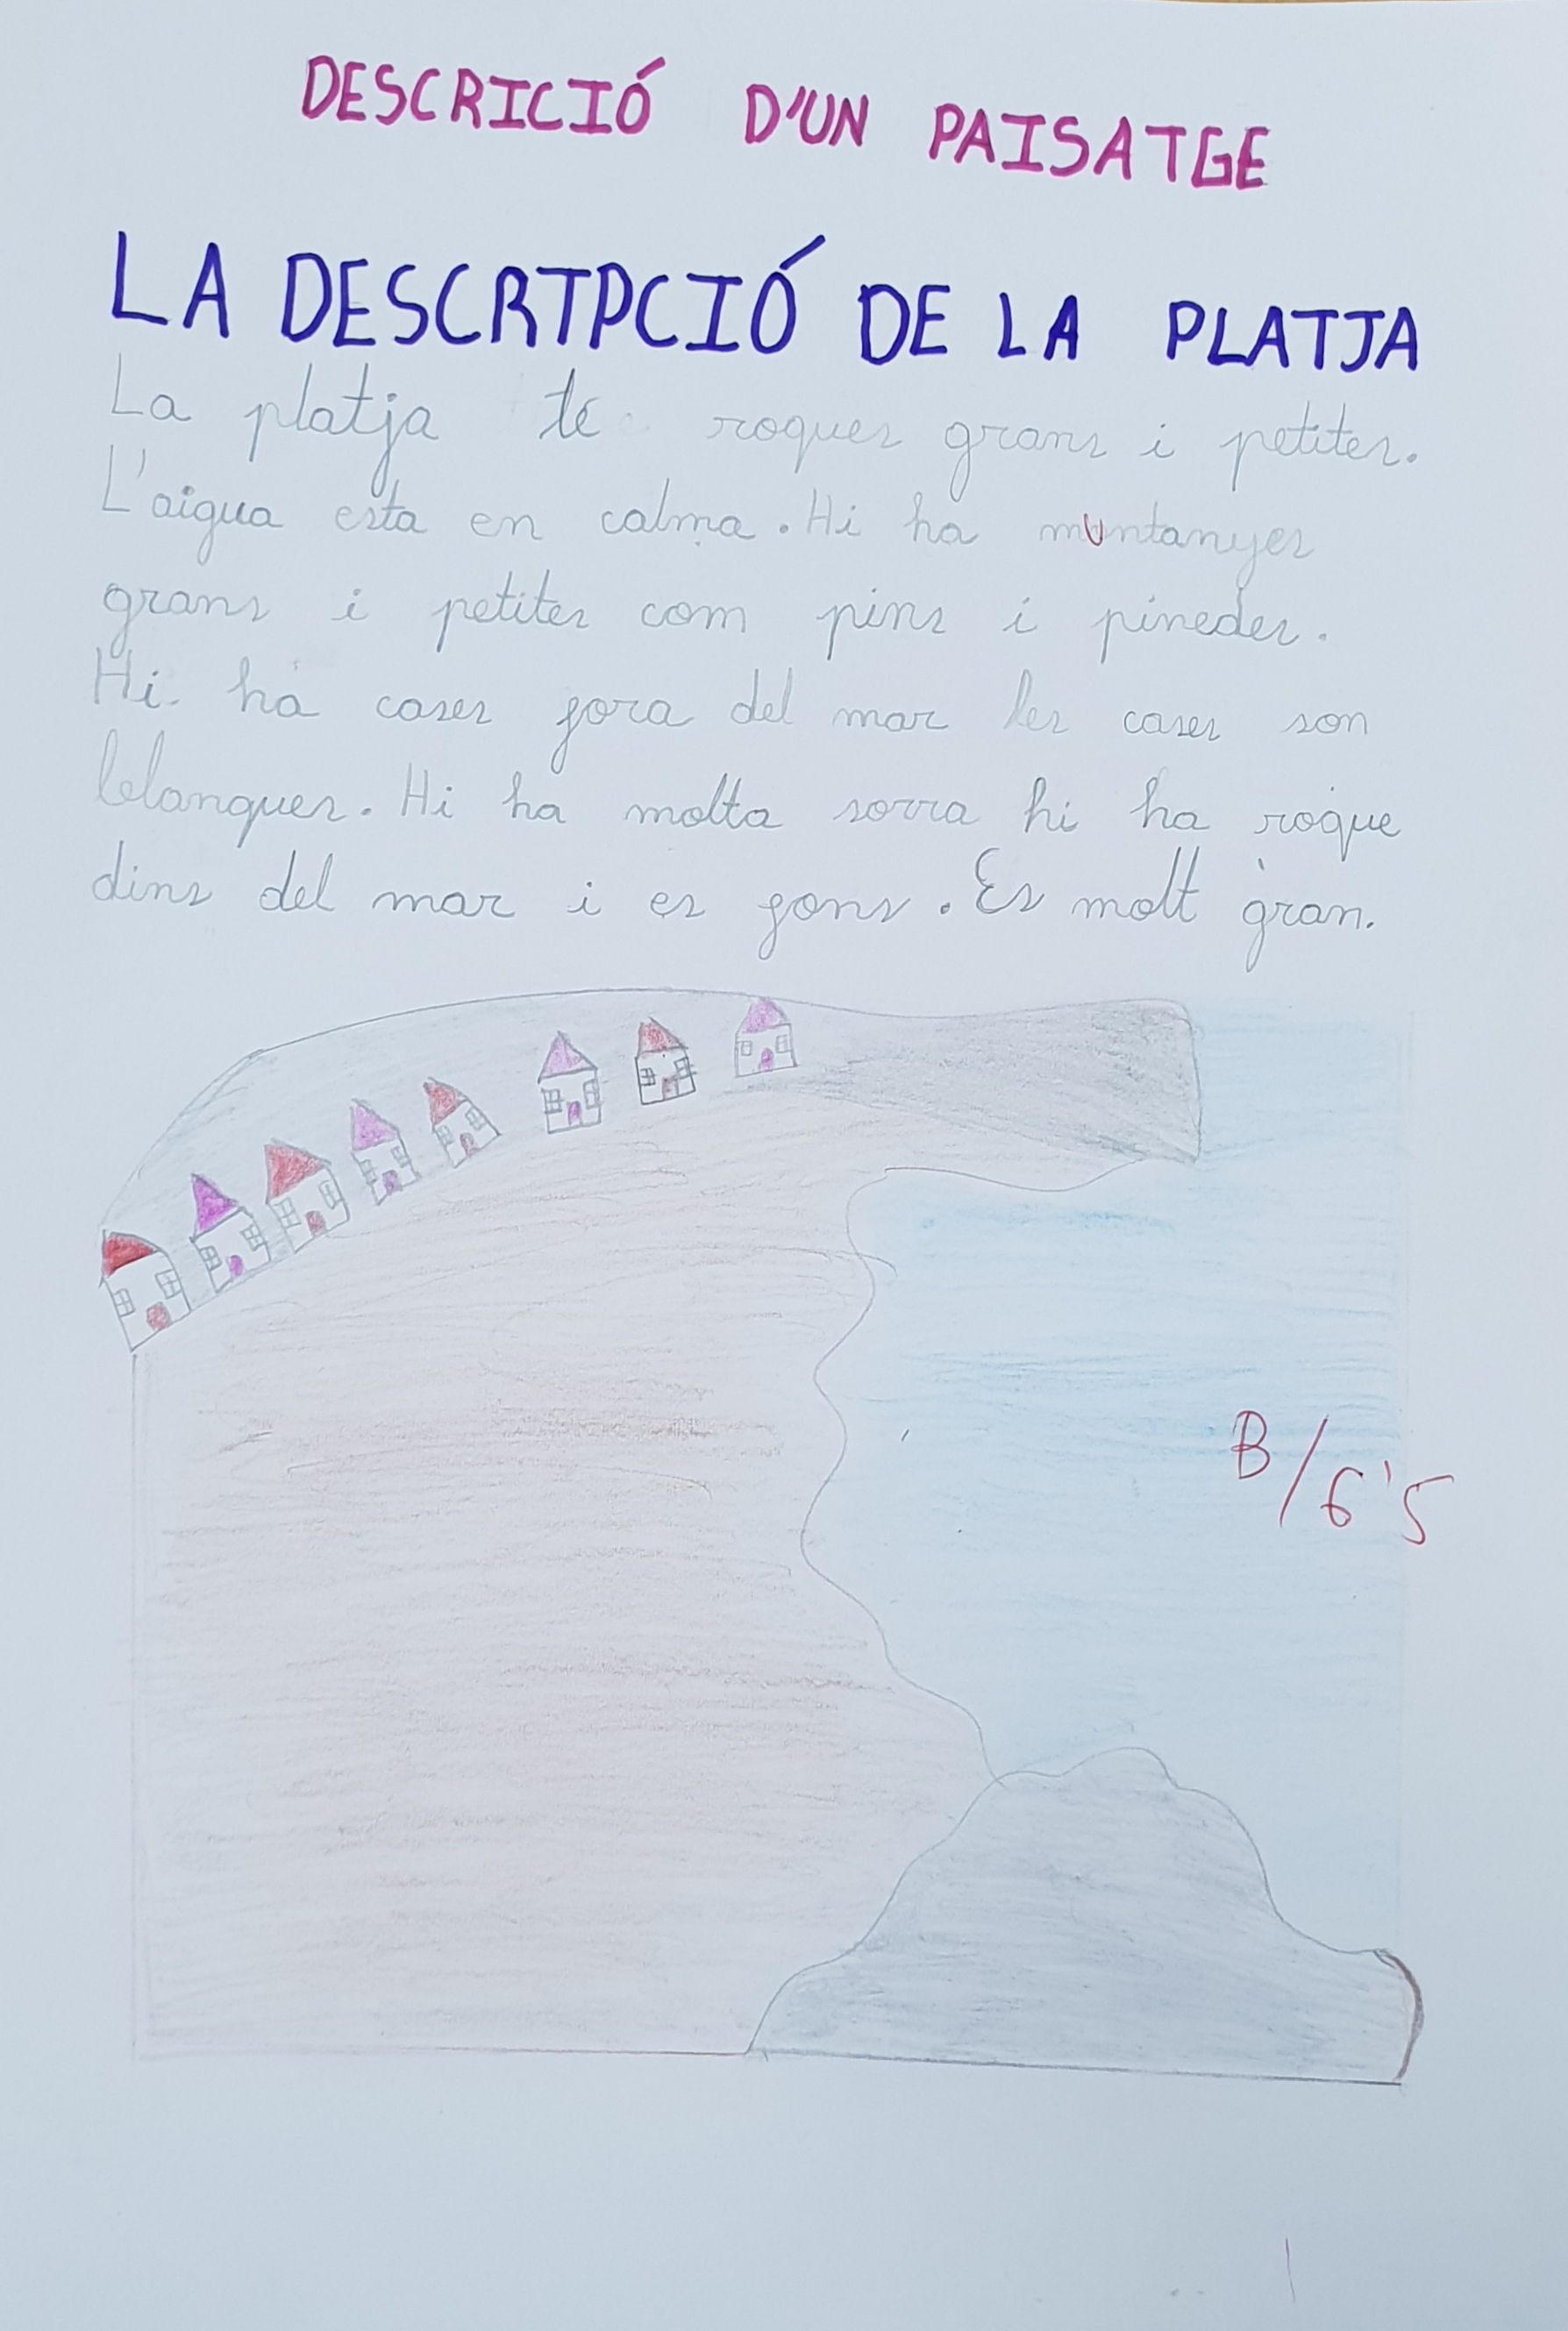 DESCRICIÓ D'UN PAISATGE
LA DESCRTPCIÓ DE LA PLATJA
La platja té roques grans i petites.
L'aigua esta en calma. Hi ha muntanyes
grans i petites com pins i pinedes.
Hi ha cases fora del mar les cases son
blanques. Hi ha molta sorra hi ha roque
dins del mar i es fons. Es molt gran.
B/6'5